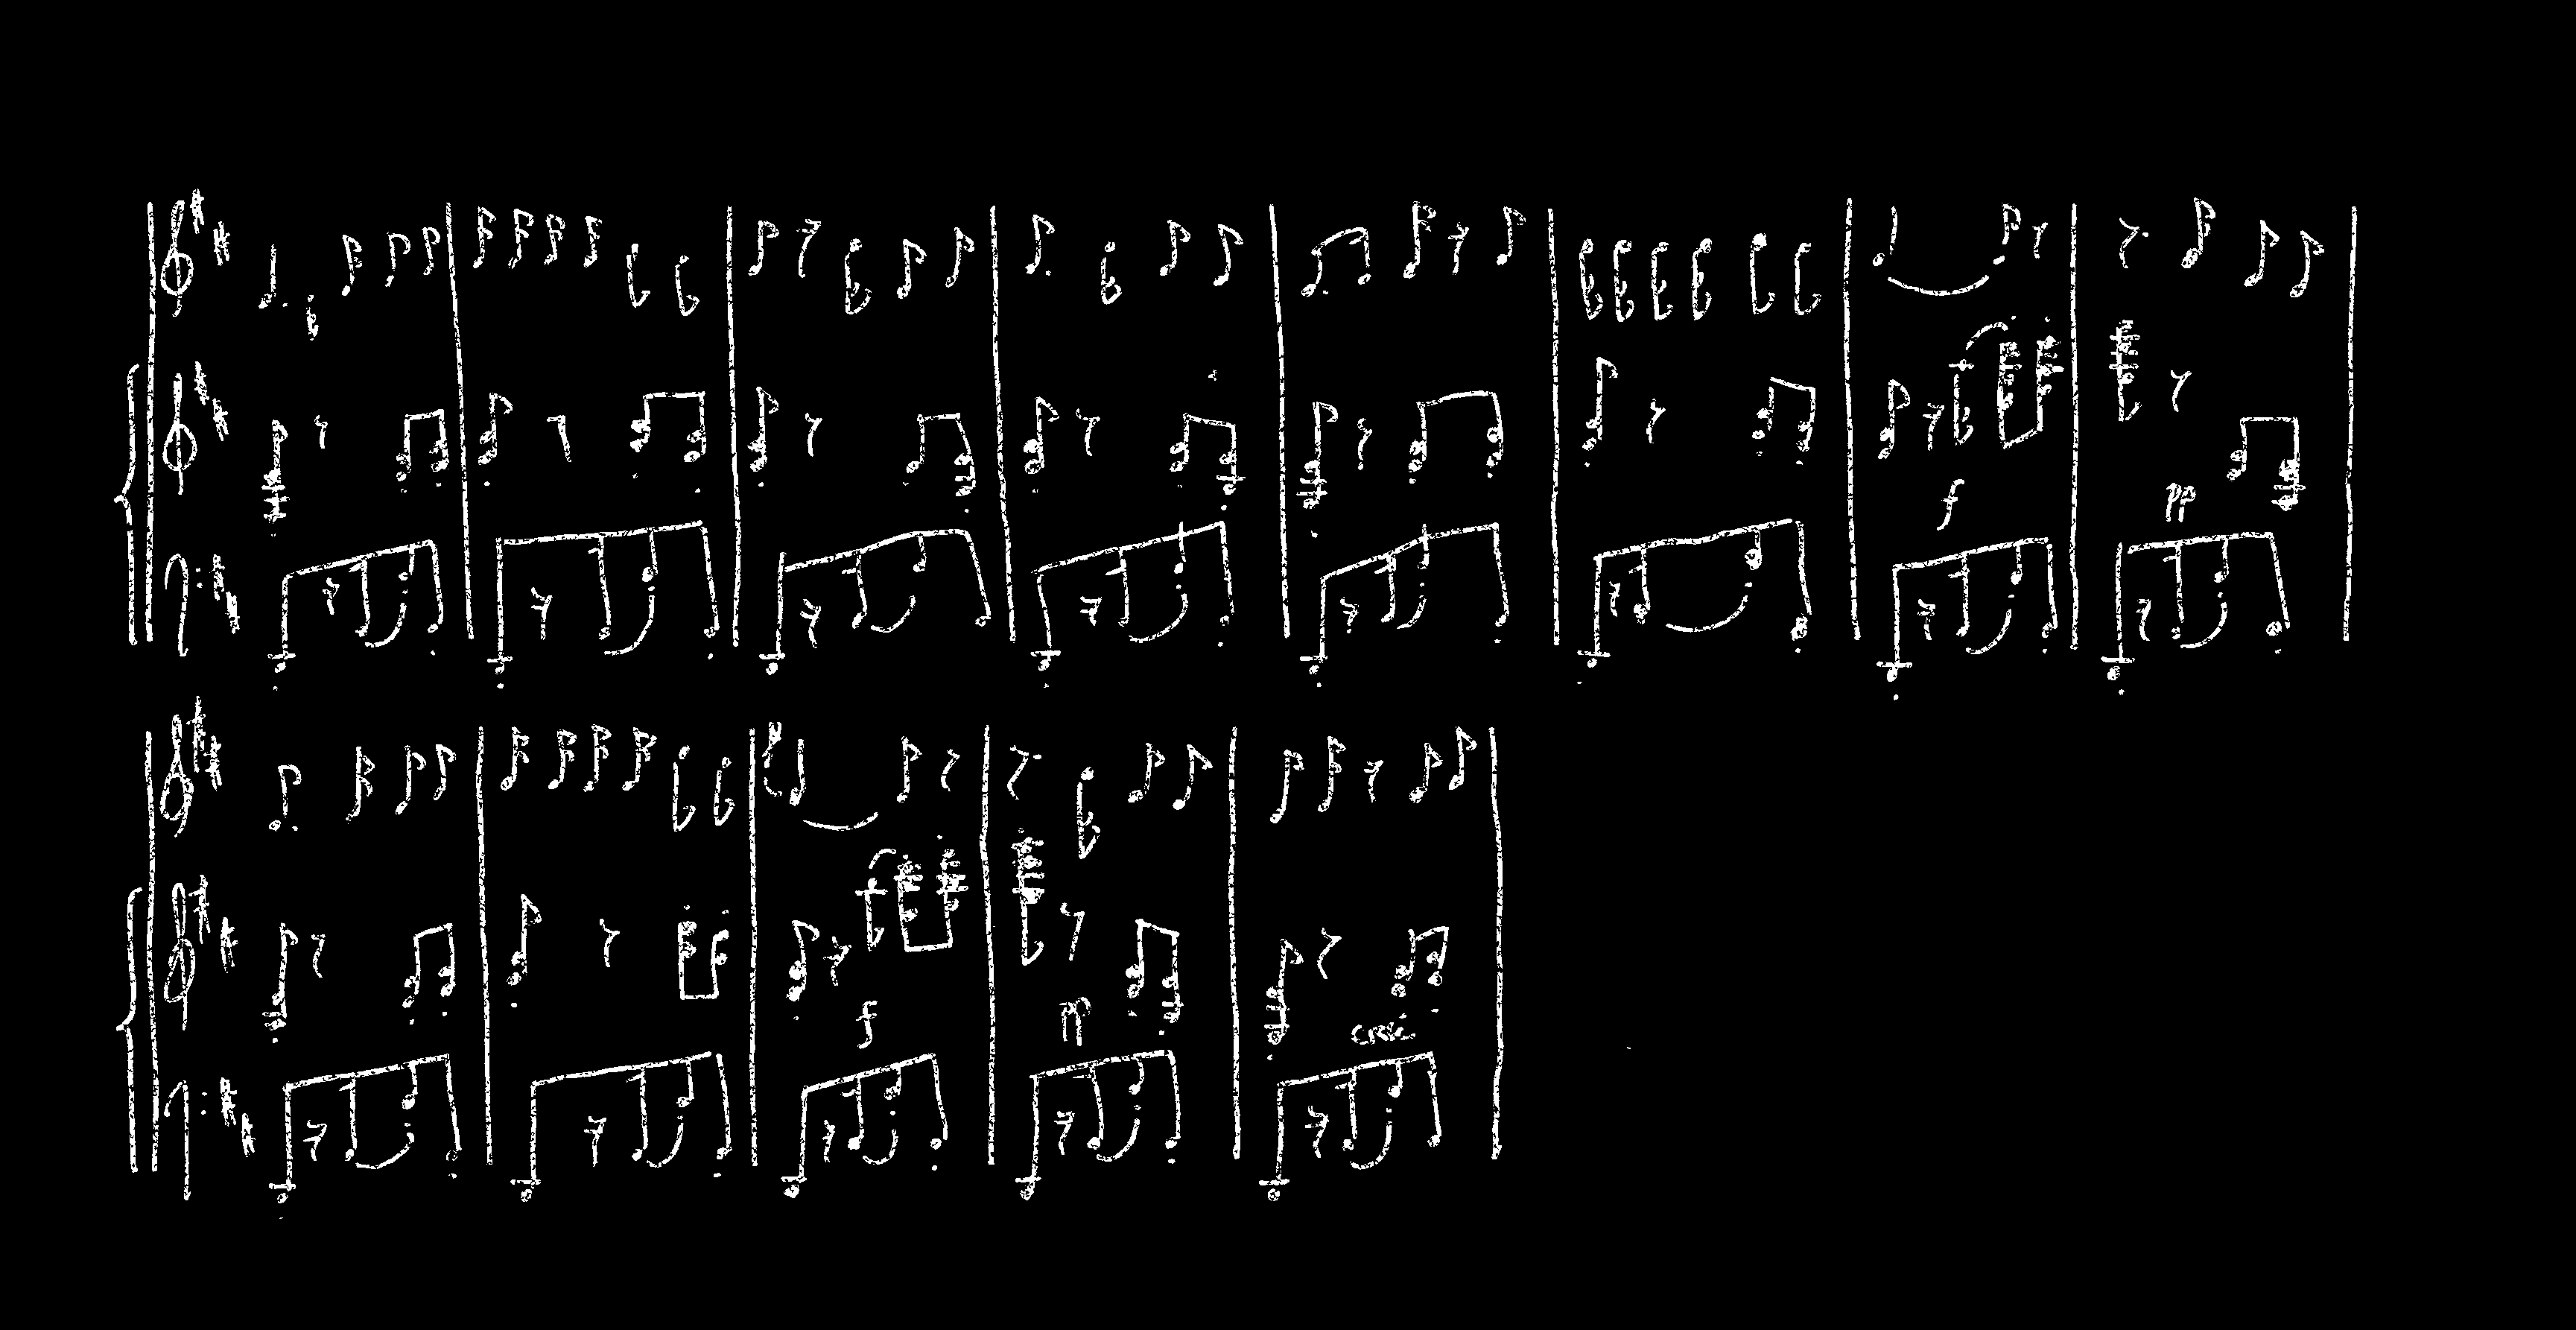 f pp
f pp
cresc.